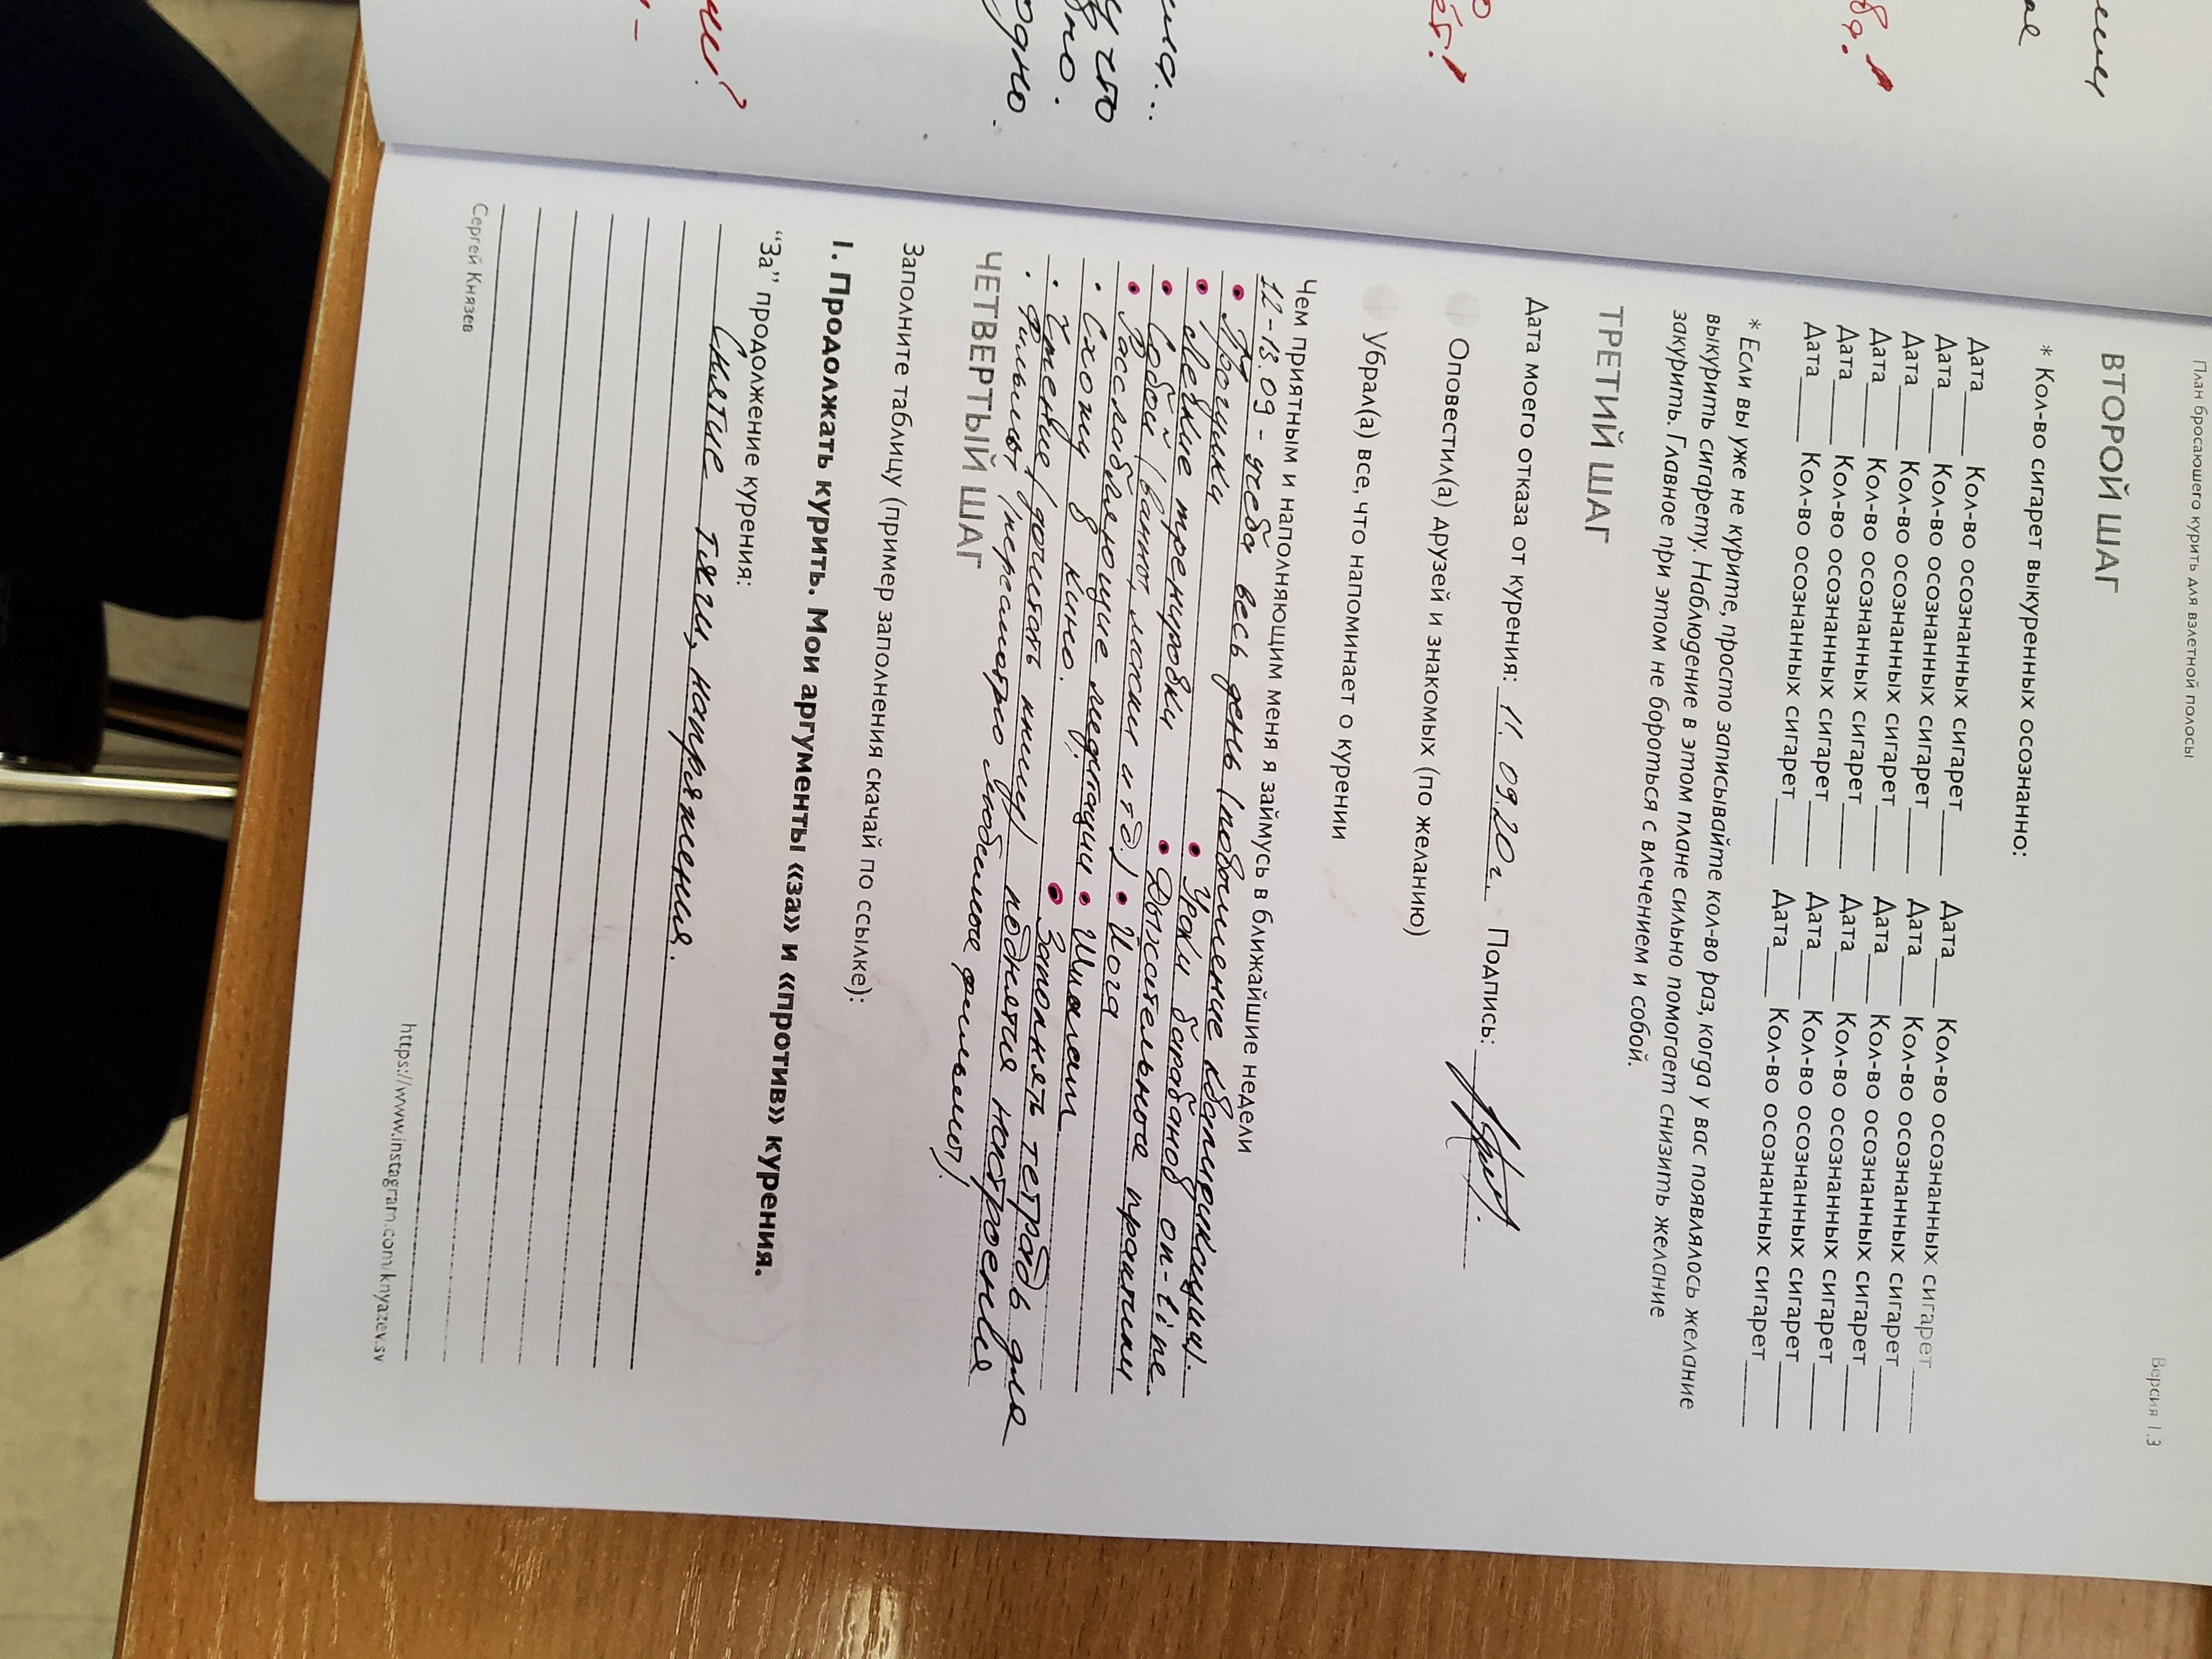 План бросающего курить для взлетной полосы Версия 1.3
ВТОРОЙ ШАГ
* Кол-во сигарет выкуренных осознанно:
Дата____ Кол-во осознанных сигарет____ Дата____ Кол-во осознанных сигарет____
Дата____ Кол-во осознанных сигарет____ Дата____ Кол-во осознанных сигарет____
Дата____ Кол-во осознанных сигарет____ Дата____ Кол-во осознанных сигарет____
Дата____ Кол-во осознанных сигарет____ Дата____ Кол-во осознанных сигарет____
Дата____ Кол-во осознанных сигарет____ Дата____ Кол-во осознанных сигарет____
Дата____ Кол-во осознанных сигарет____ Дата____ Кол-во осознанных сигарет____
* Если вы уже не курите, просто записывайте кол-во раз, когда у вас появлялось желание
выкурить сигарету. Наблюдение в этом плане сильно помогает снизить желание
закурить. Главное при этом не бороться с влечением и собой.
ТРЕТИЙ ШАГ
Дата моего отказа от курения: 11. 09.20г. Подпись:
Оповестил(а) друзей и знакомых (по желанию)
Убрал(а) все, что напоминает о курении
Чем приятным и наполняющим меня я займусь в ближайшие недели
12-13.09 - учеба весь день (повышение квалификации).
• Прогулки • Уроки барабанов on-line
• Легкие тренировки • Дыхательные практики
• Собой (ванны, маски и т.д.) • Йога
• Расслабляющие медитации • Шиатсу
• Схожу в кино. • Заполнять тетрадь для
• Чтение (дочитать книгу) поднятия настроения
• Фильмы (пересмотрю любимые фильмы).
ЧЕТВЕРТЫЙ ШАГ
Заполните таблицу (пример заполнения скачай по ссылке):
I. Продолжать курить. Мои аргументы «за» и «против» курения.
“За” продолжение курения:
Снятие тяги, напряжения.
Сергей Князев https://www.instagram.com/knyazev.sv